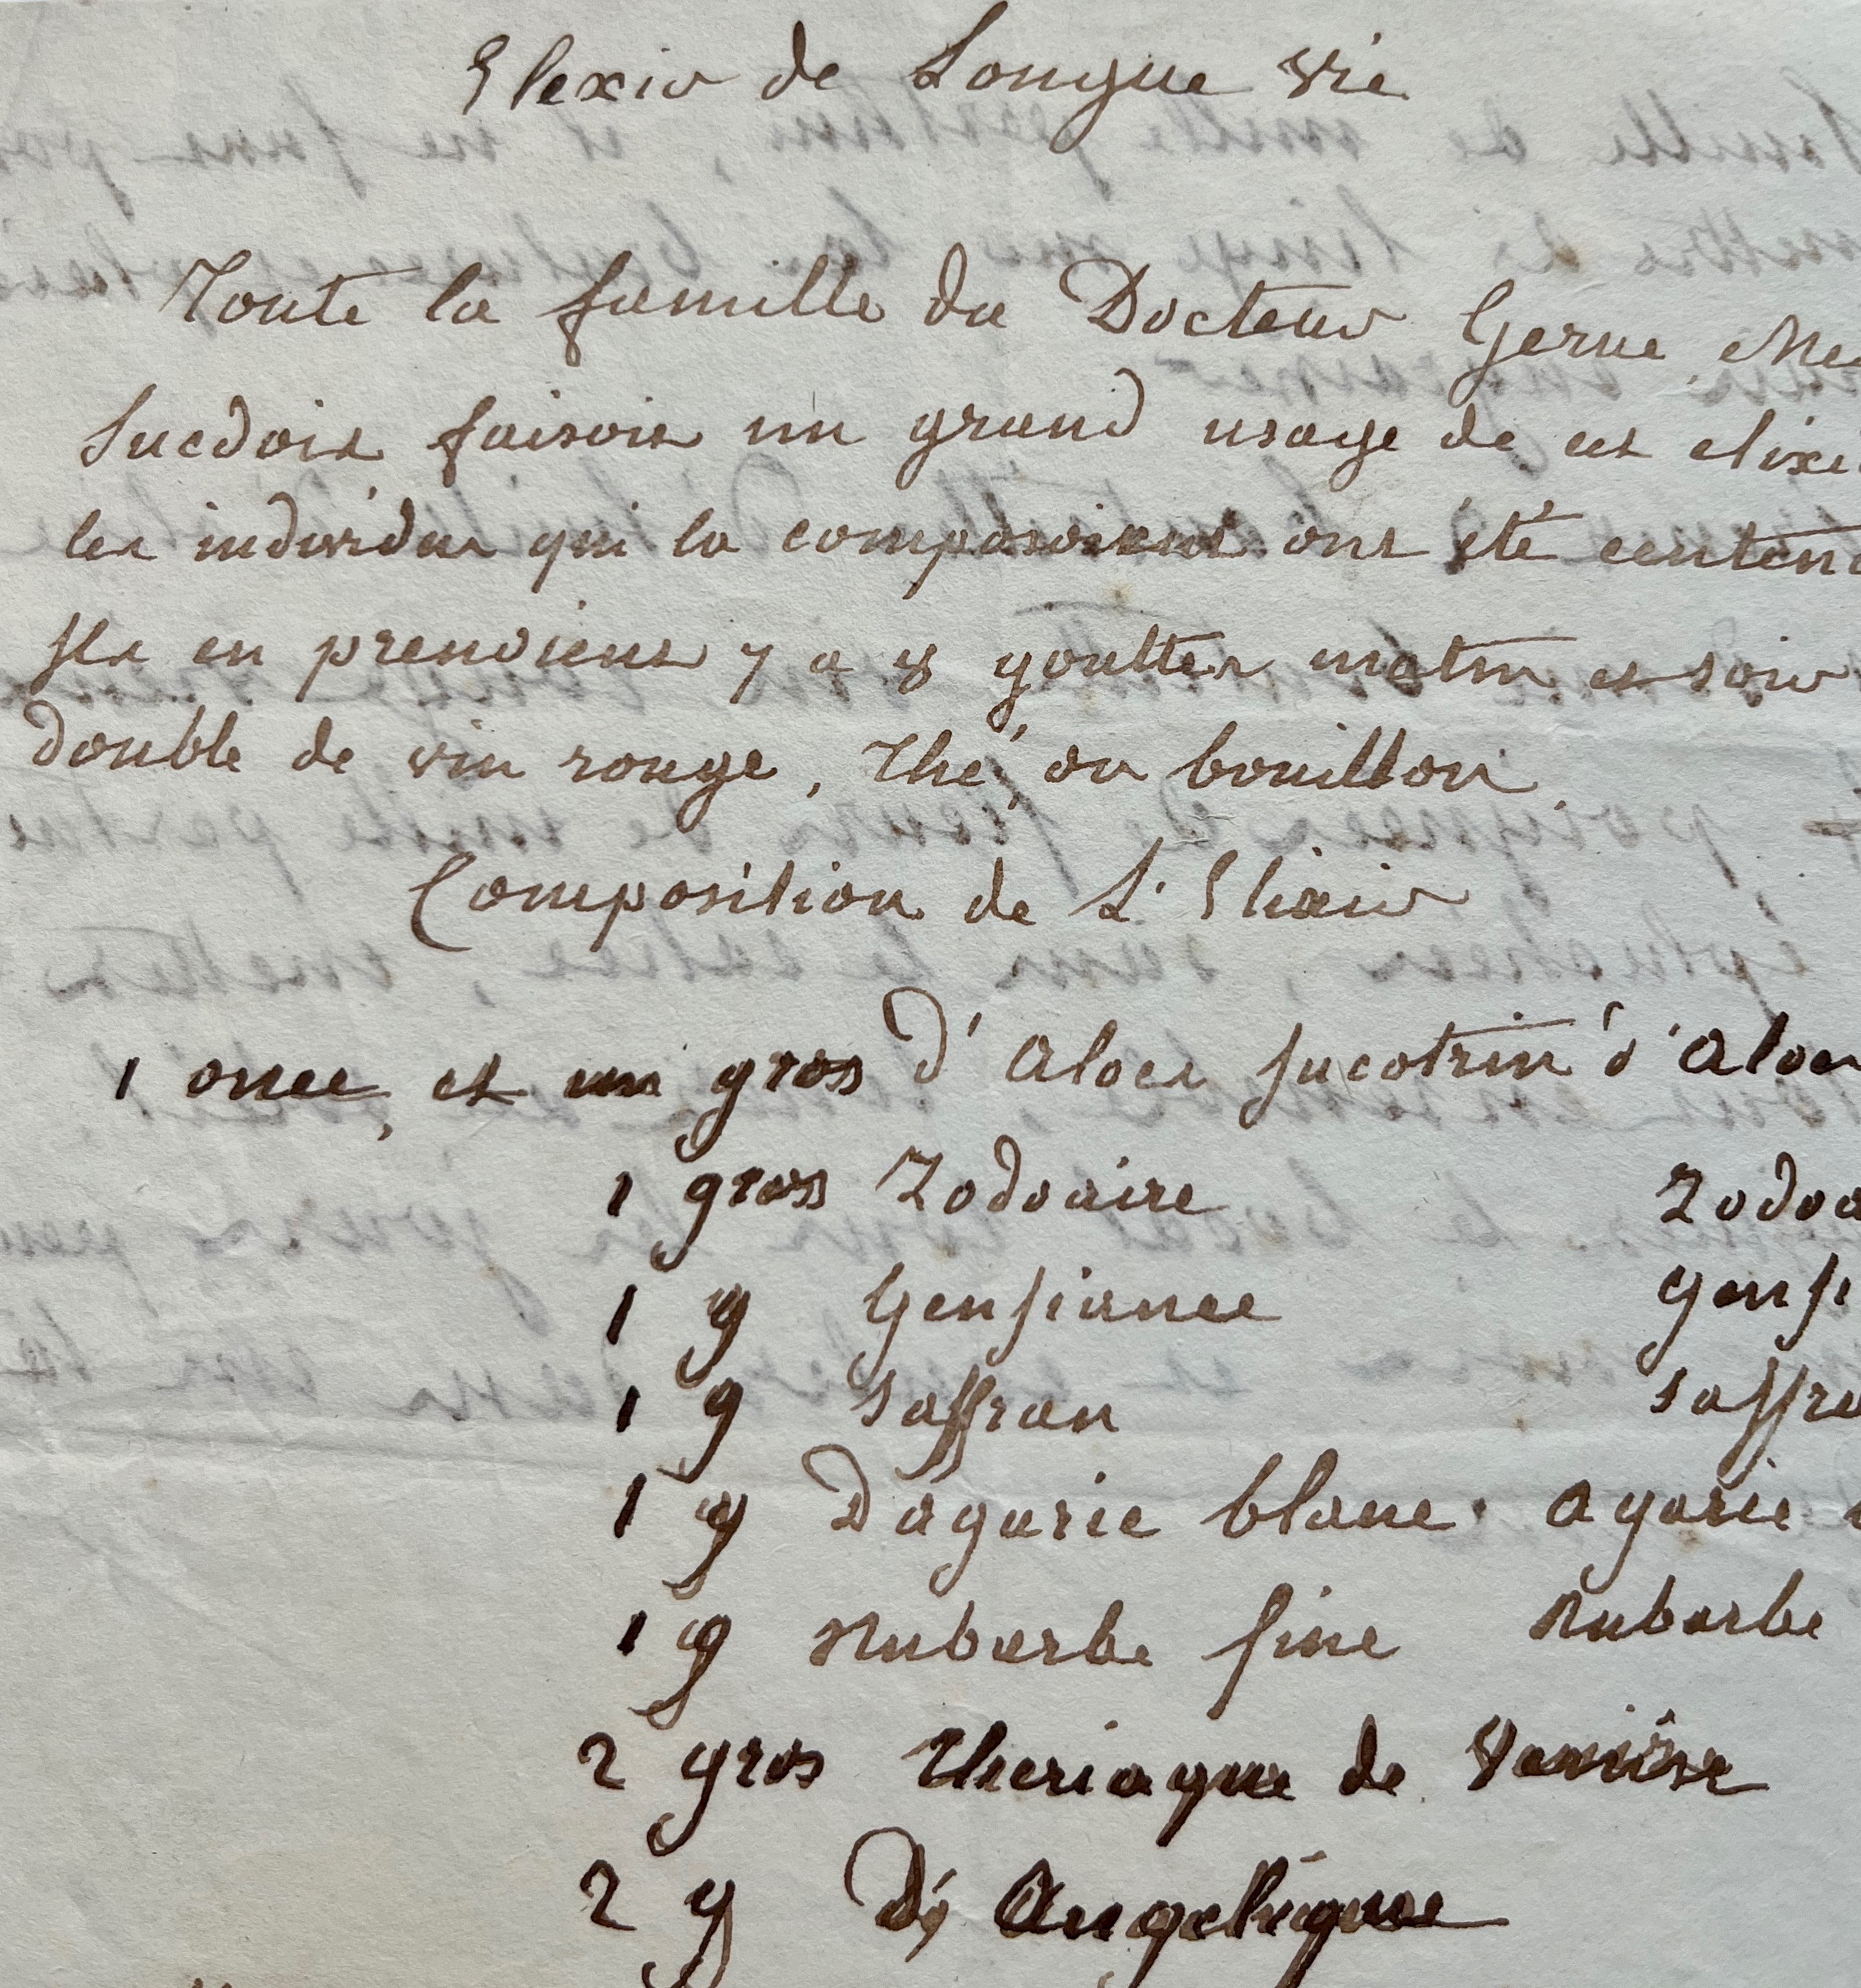 Elexir de Longue vie
Toute la famille du Docteur Gerne, Me
Suedois faisois un grand usage de cet elixi
les individus qui la composoient ont été centen
Ils en prenoient 7 a 8 goutter matin et soir
double de vin rouge, thé, ou bouillon.
Composition de L'Elixir
1 once, et un gros d'Aloes sucotrin d'Aloes
1 gros Zodoaire Zodoa
1 g Gensianee gensi
1 g saffran saffra
1 g D'agaric blanc. agaric
1 g Rubarbe fine Rubarbe
2 gros theriaque de Venise
2 g D'Angelique